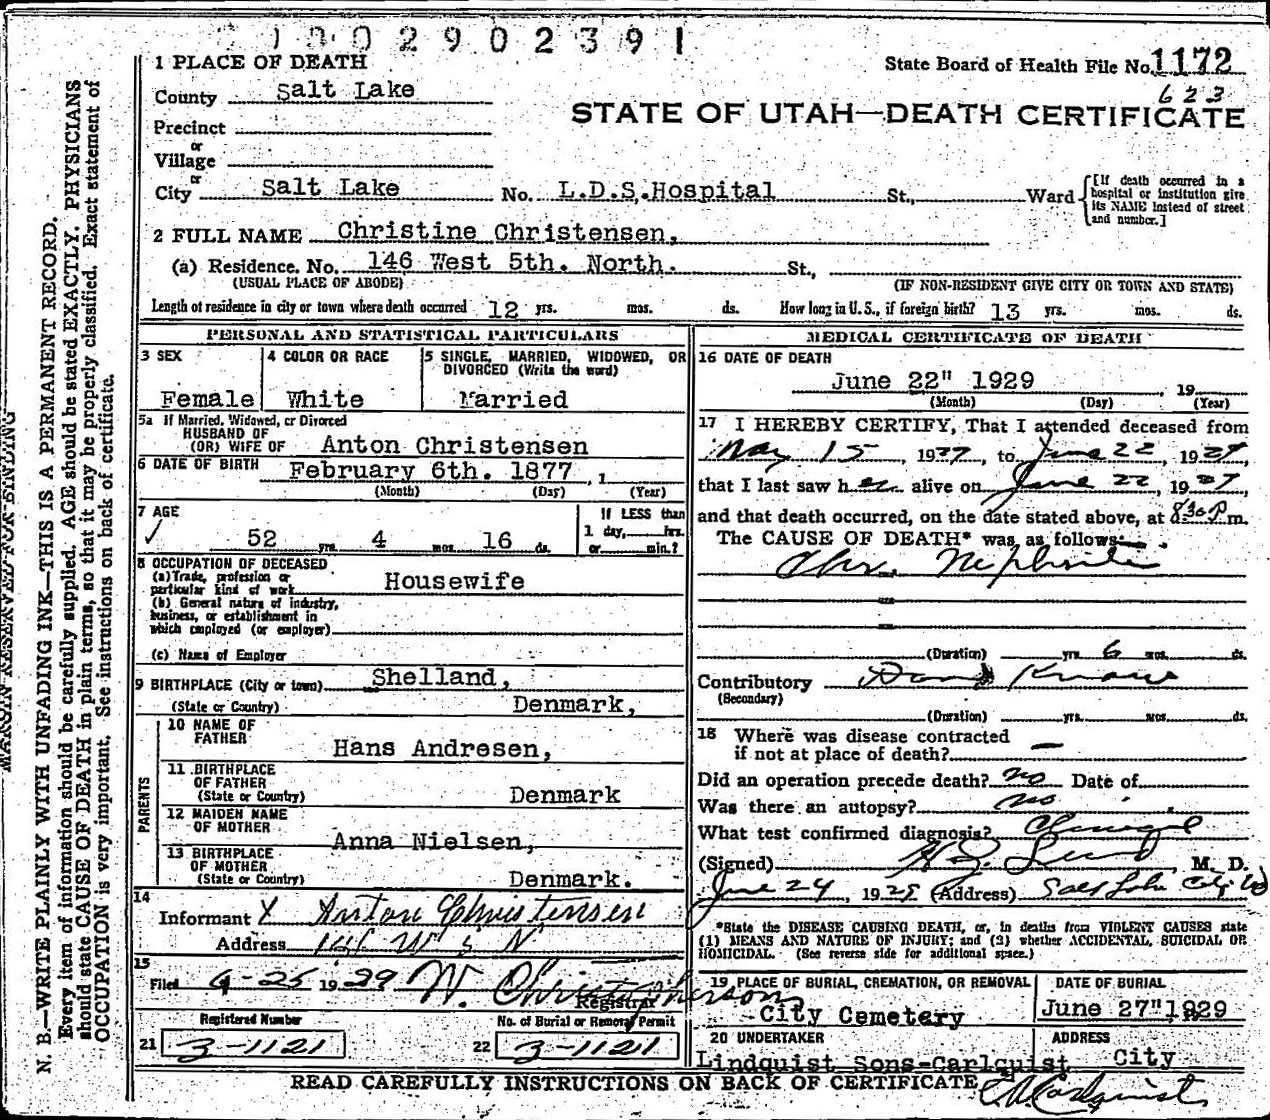 1 0 0 2 9 0 2 3 9 1
1 PLACE OF DEATH
State Board of Health File No. 1172
County Salt Lake
623
STATE OF UTAH—DEATH CERTIFICATE
Precinct
or
Village
or
City Salt Lake No. L.D.S.Hospital St., Ward
[If death occurred in a hospital or institution give its NAME instead of street and number.]
2 FULL NAME Christine Christensen,
(a) Residence. No. 146 West 5th. North. St.,
(USUAL PLACE OF ABODE) (IF NON-RESIDENT GIVE CITY OR TOWN AND STATE)
Length of residence in city or town where death occurred 12 yrs. mos. ds. How long in U.S., if foreign birth? 13 yrs. mos. ds.
PERSONAL AND STATISTICAL PARTICULARS
3 SEX
Female
4 COLOR OR RACE
White
5 SINGLE, MARRIED, WIDOWED, OR
DIVORCED (Write the word)
Married
5a If Married, Widowed, or Divorced
HUSBAND OF
(OR) WIFE OF Anton Christensen
6 DATE OF BIRTH February 6th. 1877 , 1
(Month) (Day) (Year)
7 AGE
52 yrs. 4 mos. 16 ds.
If LESS than
1 day, hrs.
or min.?
8 OCCUPATION OF DECEASED
(a) Trade, profession or
particular kind of work Housewife
(b) General nature of industry,
business, or establishment in
which employed (or employer)
(c) Name of Employer
9 BIRTHPLACE (City or town) Shelland,
(State or Country) Denmark,
PARENTS
10 NAME OF
FATHER Hans Andresen,
11 BIRTHPLACE
OF FATHER
(State or Country) Denmark
12 MAIDEN NAME
OF MOTHER Anna Nielsen,
13 BIRTHPLACE
OF MOTHER
(State or Country) Denmark.
14
Informant X Anton Christensen
Address 146 W 5 N
15
Filed 6-25 1929 W. Christophersons
Registrar
Registered Number
21 3-1121
No. of Burial or Removal Permit
22 3-1121
MEDICAL CERTIFICATE OF DEATH
16 DATE OF DEATH
June 22" 1929 , 19
(Month) (Day) (Year)
17 I HEREBY CERTIFY, That I attended deceased from
May 15 , 1929, to June 22, 1929,
that I last saw her alive on June 22, 1929,
and that death occurred, on the date stated above, at 830P m.
The CAUSE OF DEATH* was as follows:
Chr. Nephritis
(Duration) yrs. 6 mos. ds.
Contributory
(Secondary)
(Duration) yrs. mos. ds.
18 Where was disease contracted
if not at place of death? —
Did an operation precede death? no Date of
Was there an autopsy? no
What test confirmed diagnosis?
(Signed) M. D.
June 24, 1929 (Address) Salt Lake City
*State the DISEASE CAUSING DEATH, or, in deaths from VIOLENT CAUSES state
(1) MEANS AND NATURE OF INJURY; and (2) whether ACCIDENTAL, SUICIDAL OR
HOMICIDAL. (See reverse side for additional space.)
19 PLACE OF BURIAL, CREMATION, OR REMOVAL
City Cemetery
DATE OF BURIAL
June 27" 1929
20 UNDERTAKER
Lindquist Sons-Carlquist
ADDRESS
City
READ CAREFULLY INSTRUCTIONS ON BACK OF CERTIFICATE
MARGIN RESERVED FOR BINDING
N. B.—WRITE PLAINLY WITH UNFADING INK—THIS IS A PERMANENT RECORD.
Every item of information should be carefully supplied. AGE should be stated EXACTLY. PHYSICIANS
should state CAUSE OF DEATH in plain terms, so that it may be properly classified. Exact statement of
OCCUPATION is very important. See instructions on back of certificate.